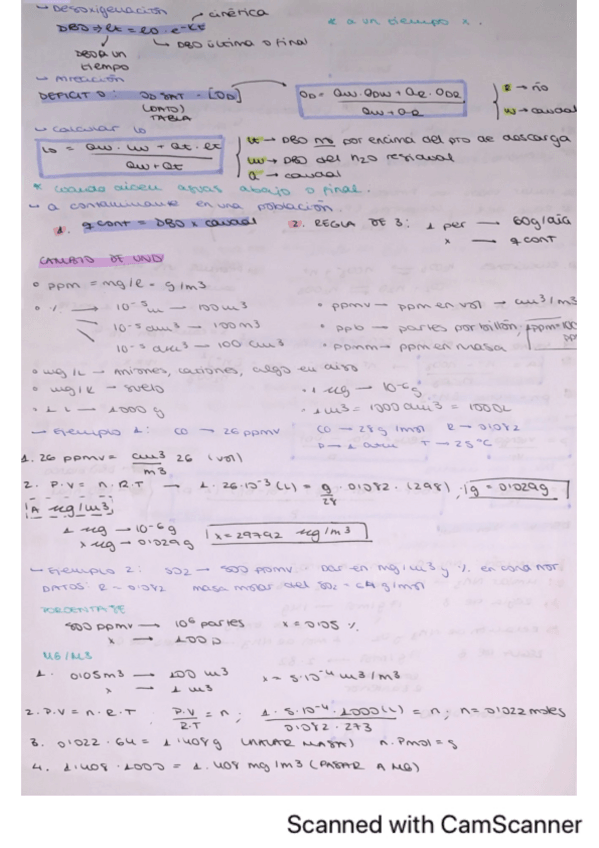 → Desoxigenación
→ cinética
DBO ⇒ lt = lo · e^-kt
* a un tiempo x.
DBO A UN TIEMPO
→ DBO última o final
DEFICIT O: OD SAT - [OD]
(DATO) TABLA
OD = Qw · ODw + Qr · ODr / Qw + Qr
R → río
w → caudal
→ Calcular lo
lo = Qw · lw + Qt · lt / Qw + Qt
lt → DBO no por encima del pto de descarga
lw → DBO del H2O residual
Q → caudal
* Cuando dicen aguas abajo o final.
→ Q contaminante en una población.
1. g cont = DBO x caudal
2. REGLA DE 3: 1 per → 60g/día
x → g cont
CAMBIO DE UND
° ppm = mg/l = g/m3
• ppmv → ppm en vol → cm3/m3
• ppb → partes por billón,
• ppmm → ppm en masa
° mg/L → aniones, cationes, algo en
° mg/K → suelo
• 1 µg → 10^-6 g
• 1 L → 1000 g
• 1m3 = 1000 dm3 = 1000L
→ Ejemplo 1: CO → 26 ppmv
CO → 28 g/mol R → 0'082
P → 1 atm T → 25°C
1. 26 ppmv = cm3/m3 26 (vol)
2. P·V = n·R·T → 1·26·10^-3 (L) = g/28 · 0'082 · (298) ; g = 0'029g
A µg/m3
1 µg → 10^-6 g
x µg → 0'029g
x = 29792 µg/m3
→ Ejemplo 2: SO2 → 500 ppmv. dar en mg/m3 y % en cond nor
DATOS: R = 0'082 masa molar del SO2 = 64 g/mol
PORCENTAJE
500 ppmv → 10^6 partes x = 0'05 %
x → 100
MG/M3
1. 0'05m3 → 100 m3 x = 5·10^-4 m3/m3
x → 1 m3
2. P·V = n·R·T P·V/R·T = n; 1·5·10^-4·1000(L) / 0'082·273 = n; n = 0'022 moles
3. 0'022 · 64 = 1'408g n·Pmol = g
4. 1'408 · 1000 = 1.408 mg/m3 (PASAR A MG)
Scanned with CamScanner